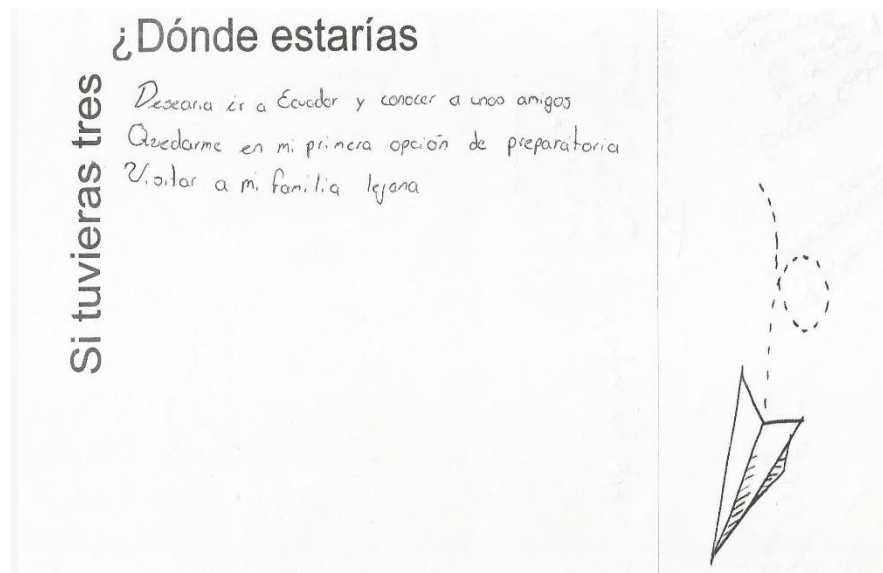 ¿Dónde estarías
Si tuvieras tres
Desearia ir a Ecuador y conocer a unos amigos
Quedarme en mi primera opción de preparatoria
Visitar a mi familia lejana